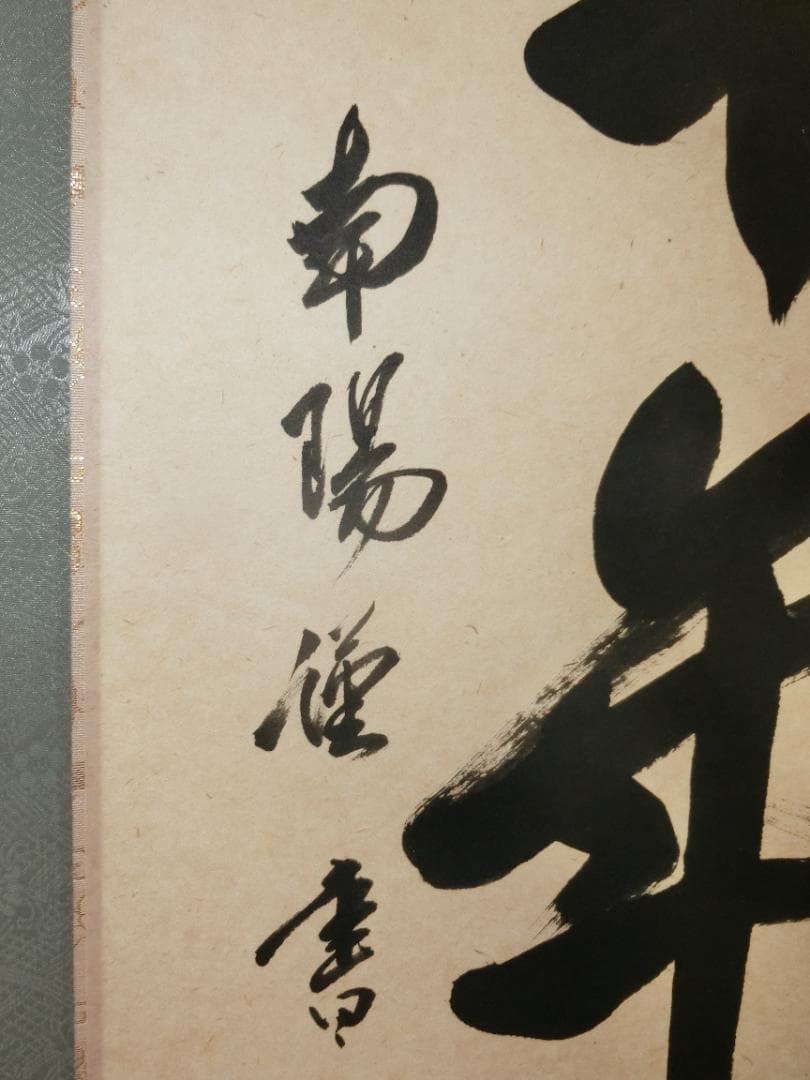 年
南陽謹書